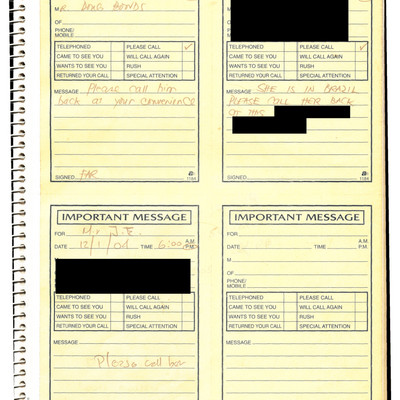 MR DOUG BONDS
OF
PHONE/
MOBILE
TELEPHONED PLEASE CALL ✓
CAME TO SEE YOU WILL CALL AGAIN
WANTS TO SEE YOU RUSH
RETURNED YOUR CALL SPECIAL ATTENTION
MESSAGE Please call him
back at your convenience
SIGNED FAR 1184
PHONE/
MOBILE
TELEPHONED PLEASE CALL ✓
CAME TO SEE YOU WILL CALL AGAIN
WANTS TO SEE YOU RUSH
RETURNED YOUR CALL SPECIAL ATTENTION
MESSAGE SHE IS IN BRAZIL
PLEASE CALL HER BACK
SIGNED 1184
IMPORTANT MESSAGE
FOR Mr J.E.
DATE 12/1/04 TIME 6:00 A.M. P.M.
TELEPHONED PLEASE CALL
CAME TO SEE YOU WILL CALL AGAIN
WANTS TO SEE YOU RUSH
RETURNED YOUR CALL SPECIAL ATTENTION
MESSAGE
Please call her
IMPORTANT MESSAGE
FOR
DATE TIME A.M. P.M.
M
OF
PHONE/
MOBILE
TELEPHONED PLEASE CALL
CAME TO SEE YOU WILL CALL AGAIN
WANTS TO SEE YOU RUSH
RETURNED YOUR CALL SPECIAL ATTENTION
MESSAGE